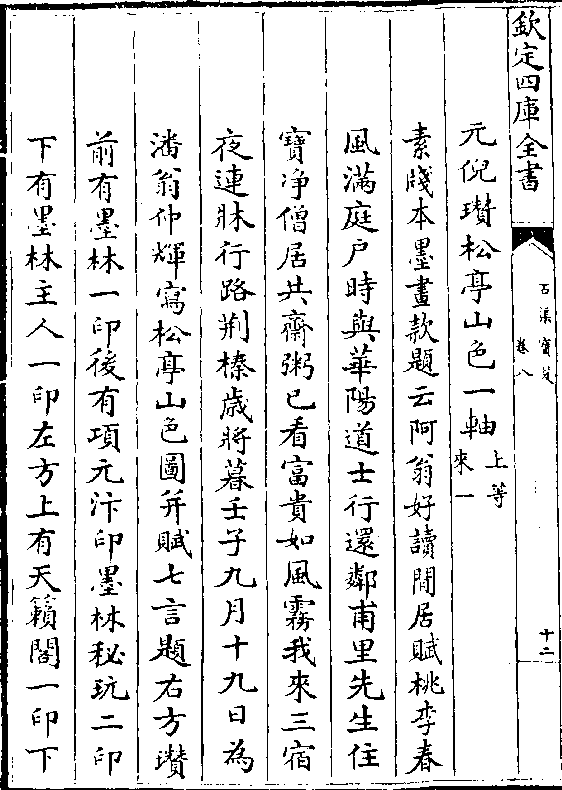 欽定四庫全書
石渠寶笈
卷八
十二
元倪瓚松亭山色一軸
上等
來一
素牋本墨畫款題云阿翁好讀閒居賦桃李春
風滿庭戶時與華陽道士行還鄰甫里先生住
寶净僧居共齋粥已看富貴如風霧我來三宿
夜連牀行路荆榛歳將暮壬子九月十九日為
潘翁仲輝寫松亭山色圖并賦七言題右方瓚
前有墨林一印後有項元汴印墨林秘玩二印
下有墨林主人一印左方上有天籟閣一印下